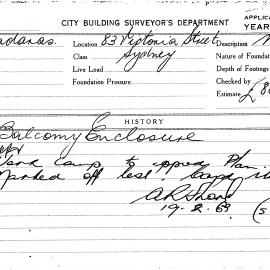 CITY BUILDING SURVEYOR'S DEPARTMENT
APPLIC
YEAR
adanas.
Location 83 Victoria Street
Description
Class Sydney
Nature of Found
Live Load
Depth of Footings
Foundation Pressure
Checked by
Estimate £
HISTORY
Balcony Enclosure
to approved Plan.
Marked off
19-2-63